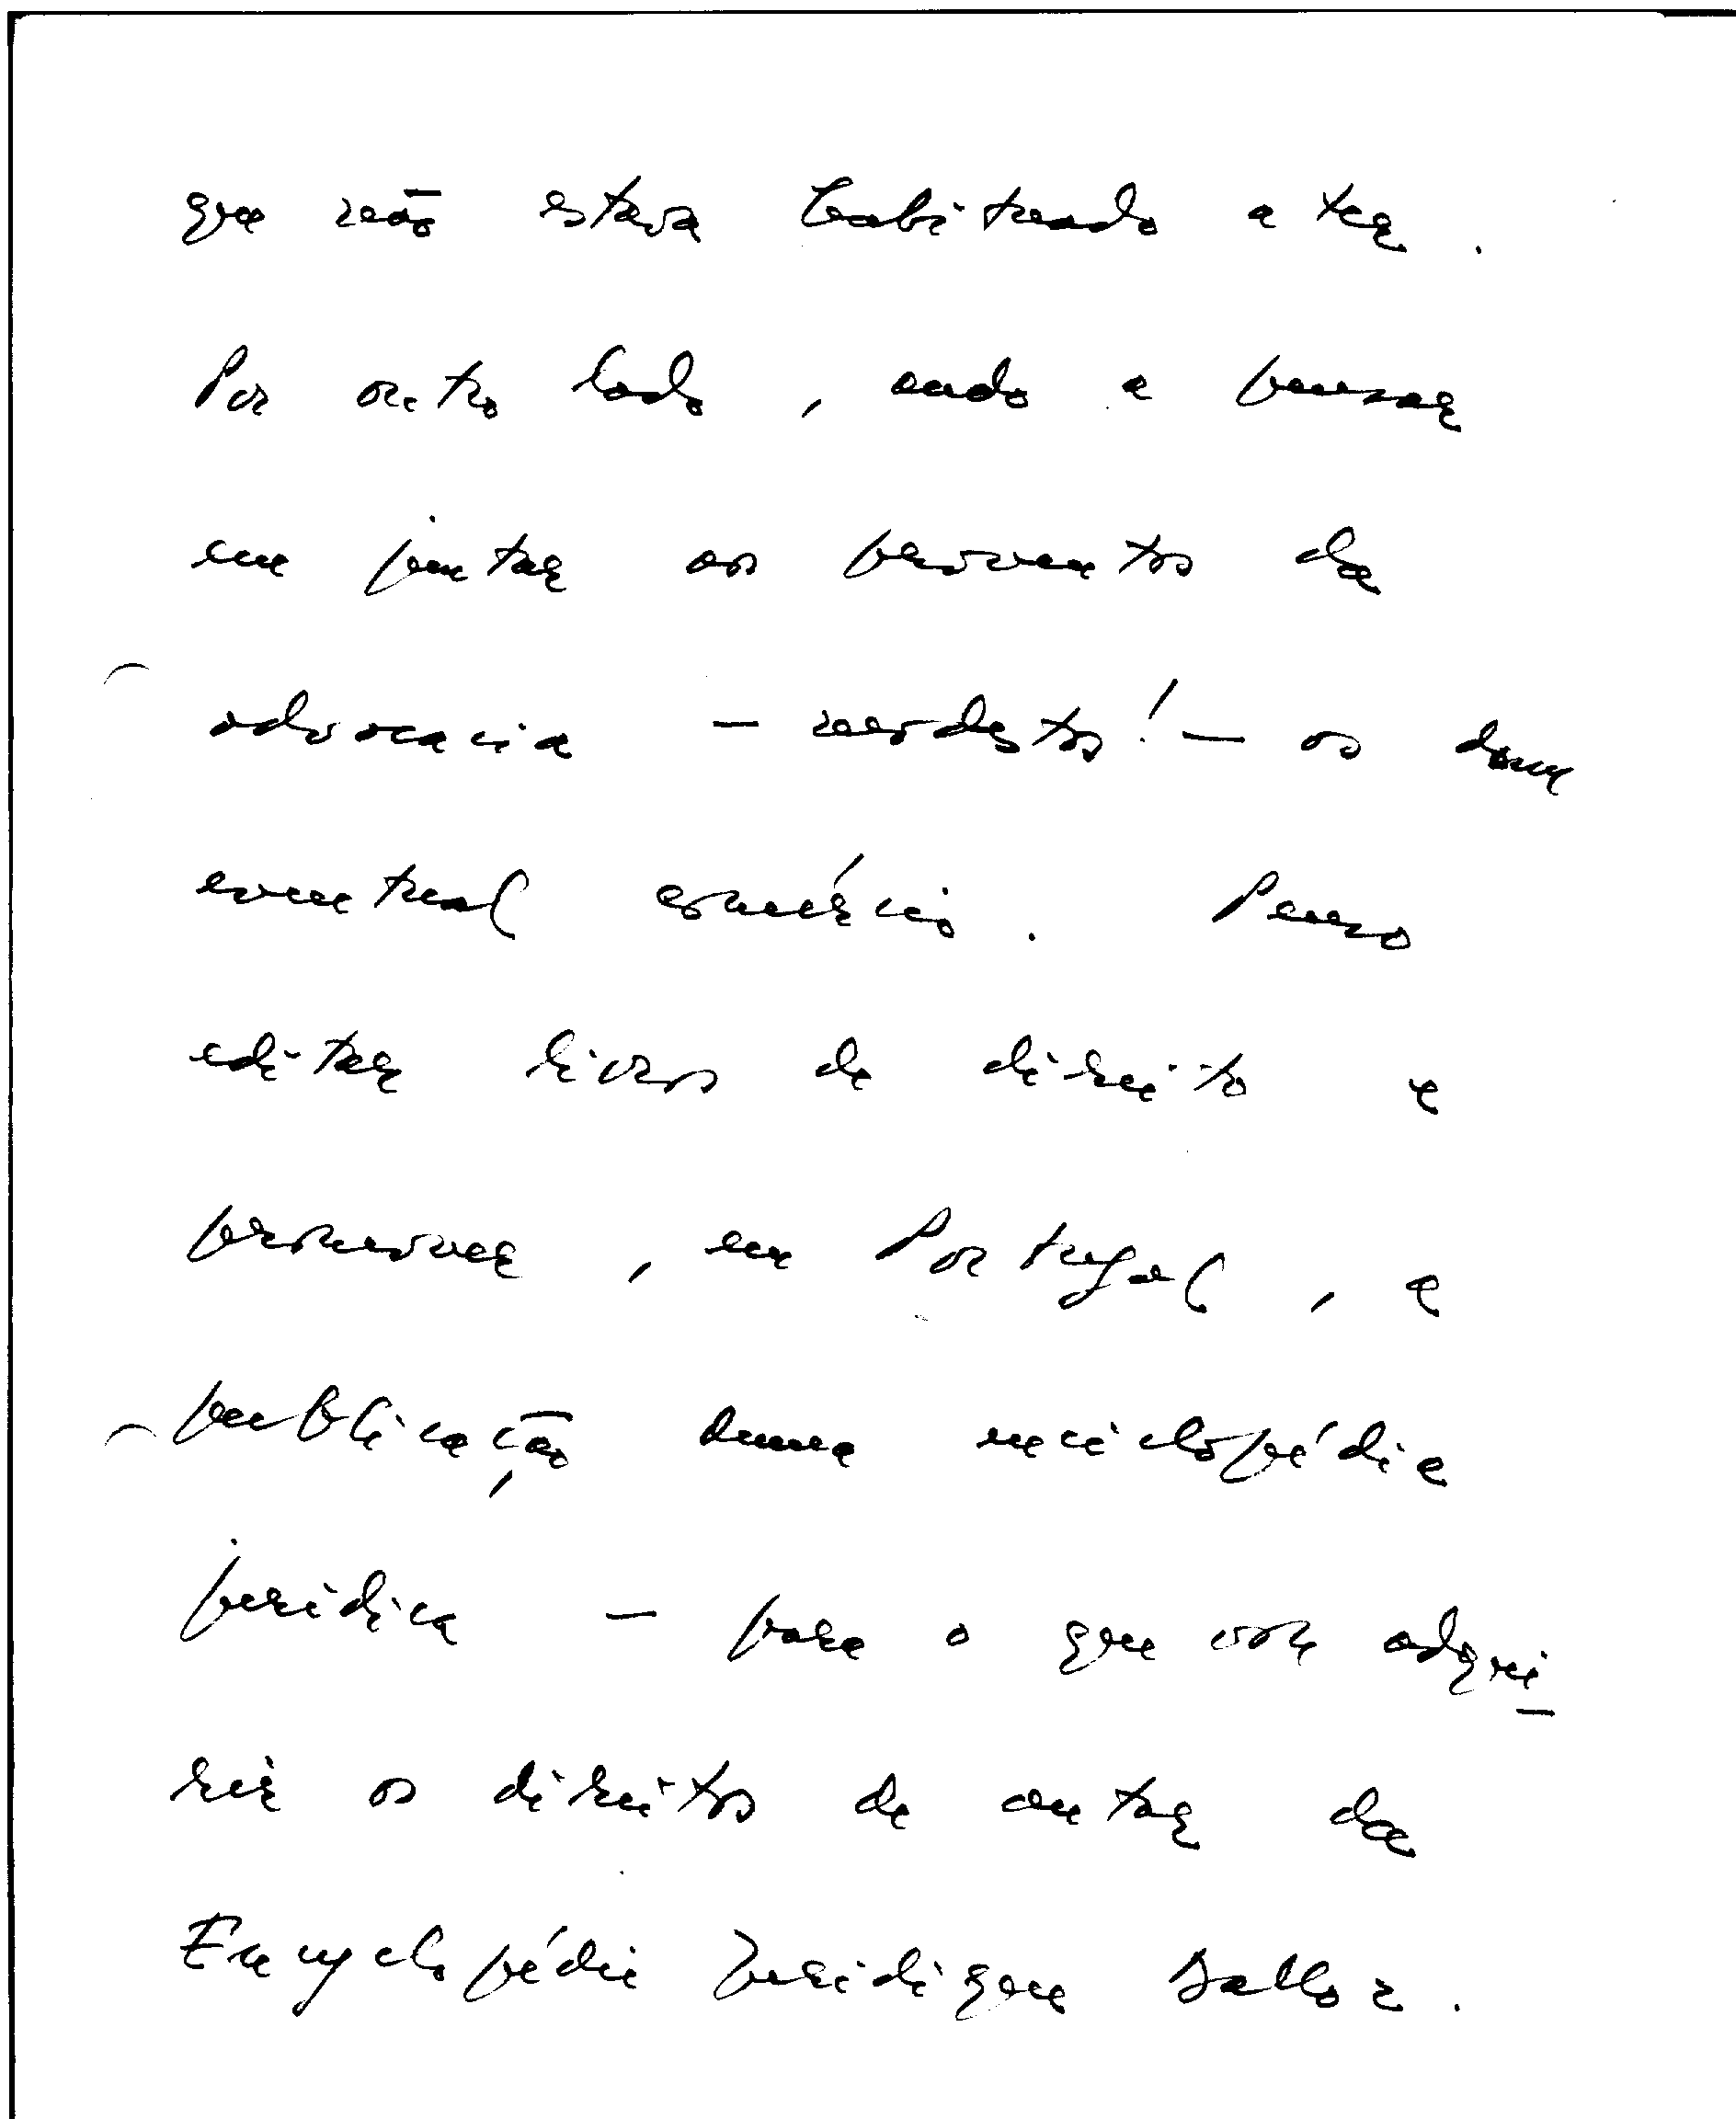 que não estava habituado a ter.
Por outro lado, ando a pensar
em juntar os proventos da
advocacia – modestos! – os dum
eventual comércio. Penso
editar livros de direito e
promover, em Portugal, a
publicação duma enciclopédia
jurídica – para o que vou adqui-
rir os direitos de autor da
Encyclopédie Juridique Dalloz.